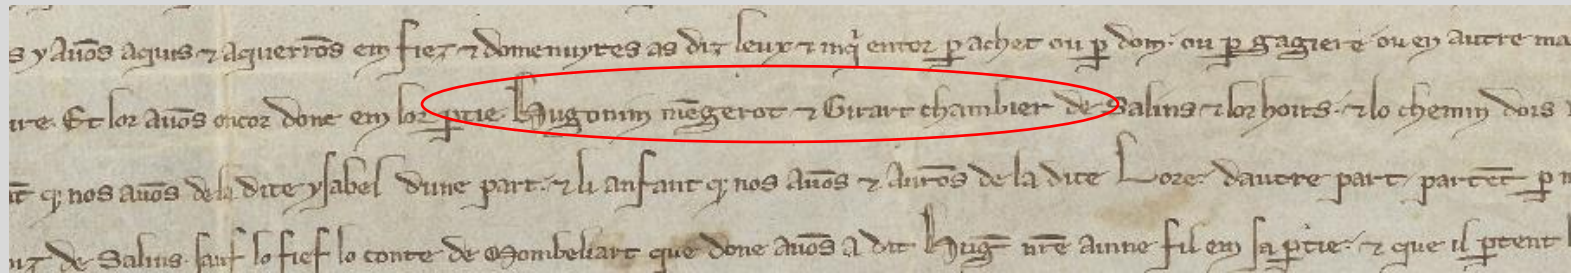 s y avōs aquis ⁊ aquerrōs em fiez ⁊ domenuyres as diz leux ⁊ inqi entor ꝑ achet ou ꝑ dom. ou ꝑ gagiere ou en autre ma
ire. Et lor avōs oncor done em lor ꝑtie. Hugonin mēgerot ⁊ Girart chambier de Salins ⁊ lor hoirs. ⁊ lo chemin dois
nt̄ q̄ nos avōs de la dite ysabel dune part. ⁊ li anfant q̄ nos avōs ⁊ aurōs de la dite Lore. dautre part. partēt ꝑ m
de Salins. sauf lo fief lo conte de Mombeliart que done avōs a dit Huḡ nr̄e ainne fil em sa ꝑtie. ⁊ que il ꝑtent l